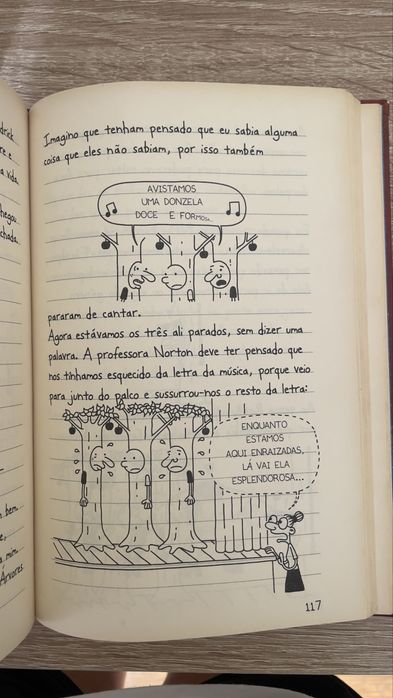 drick
re e
a vida.
hegou
chada.
bem...
e,
a mim.
Árvores
Imagino que tenham pensado que eu sabia alguma
coisa que eles não sabiam, por isso também
AVISTAMOS
UMA DONZELA
DOCE E FORMOSA...
pararam de cantar.
Agora estávamos os três ali parados, sem dizer uma
palavra. A professora Norton deve ter pensado que
nos tínhamos esquecido da letra da música, porque veio
para junto do palco e sussurrou-nos o resto da letra:
ENQUANTO
ESTAMOS
AQUI ENRAIZADAS,
LÁ VAI ELA
ESPLENDOROSA...
117